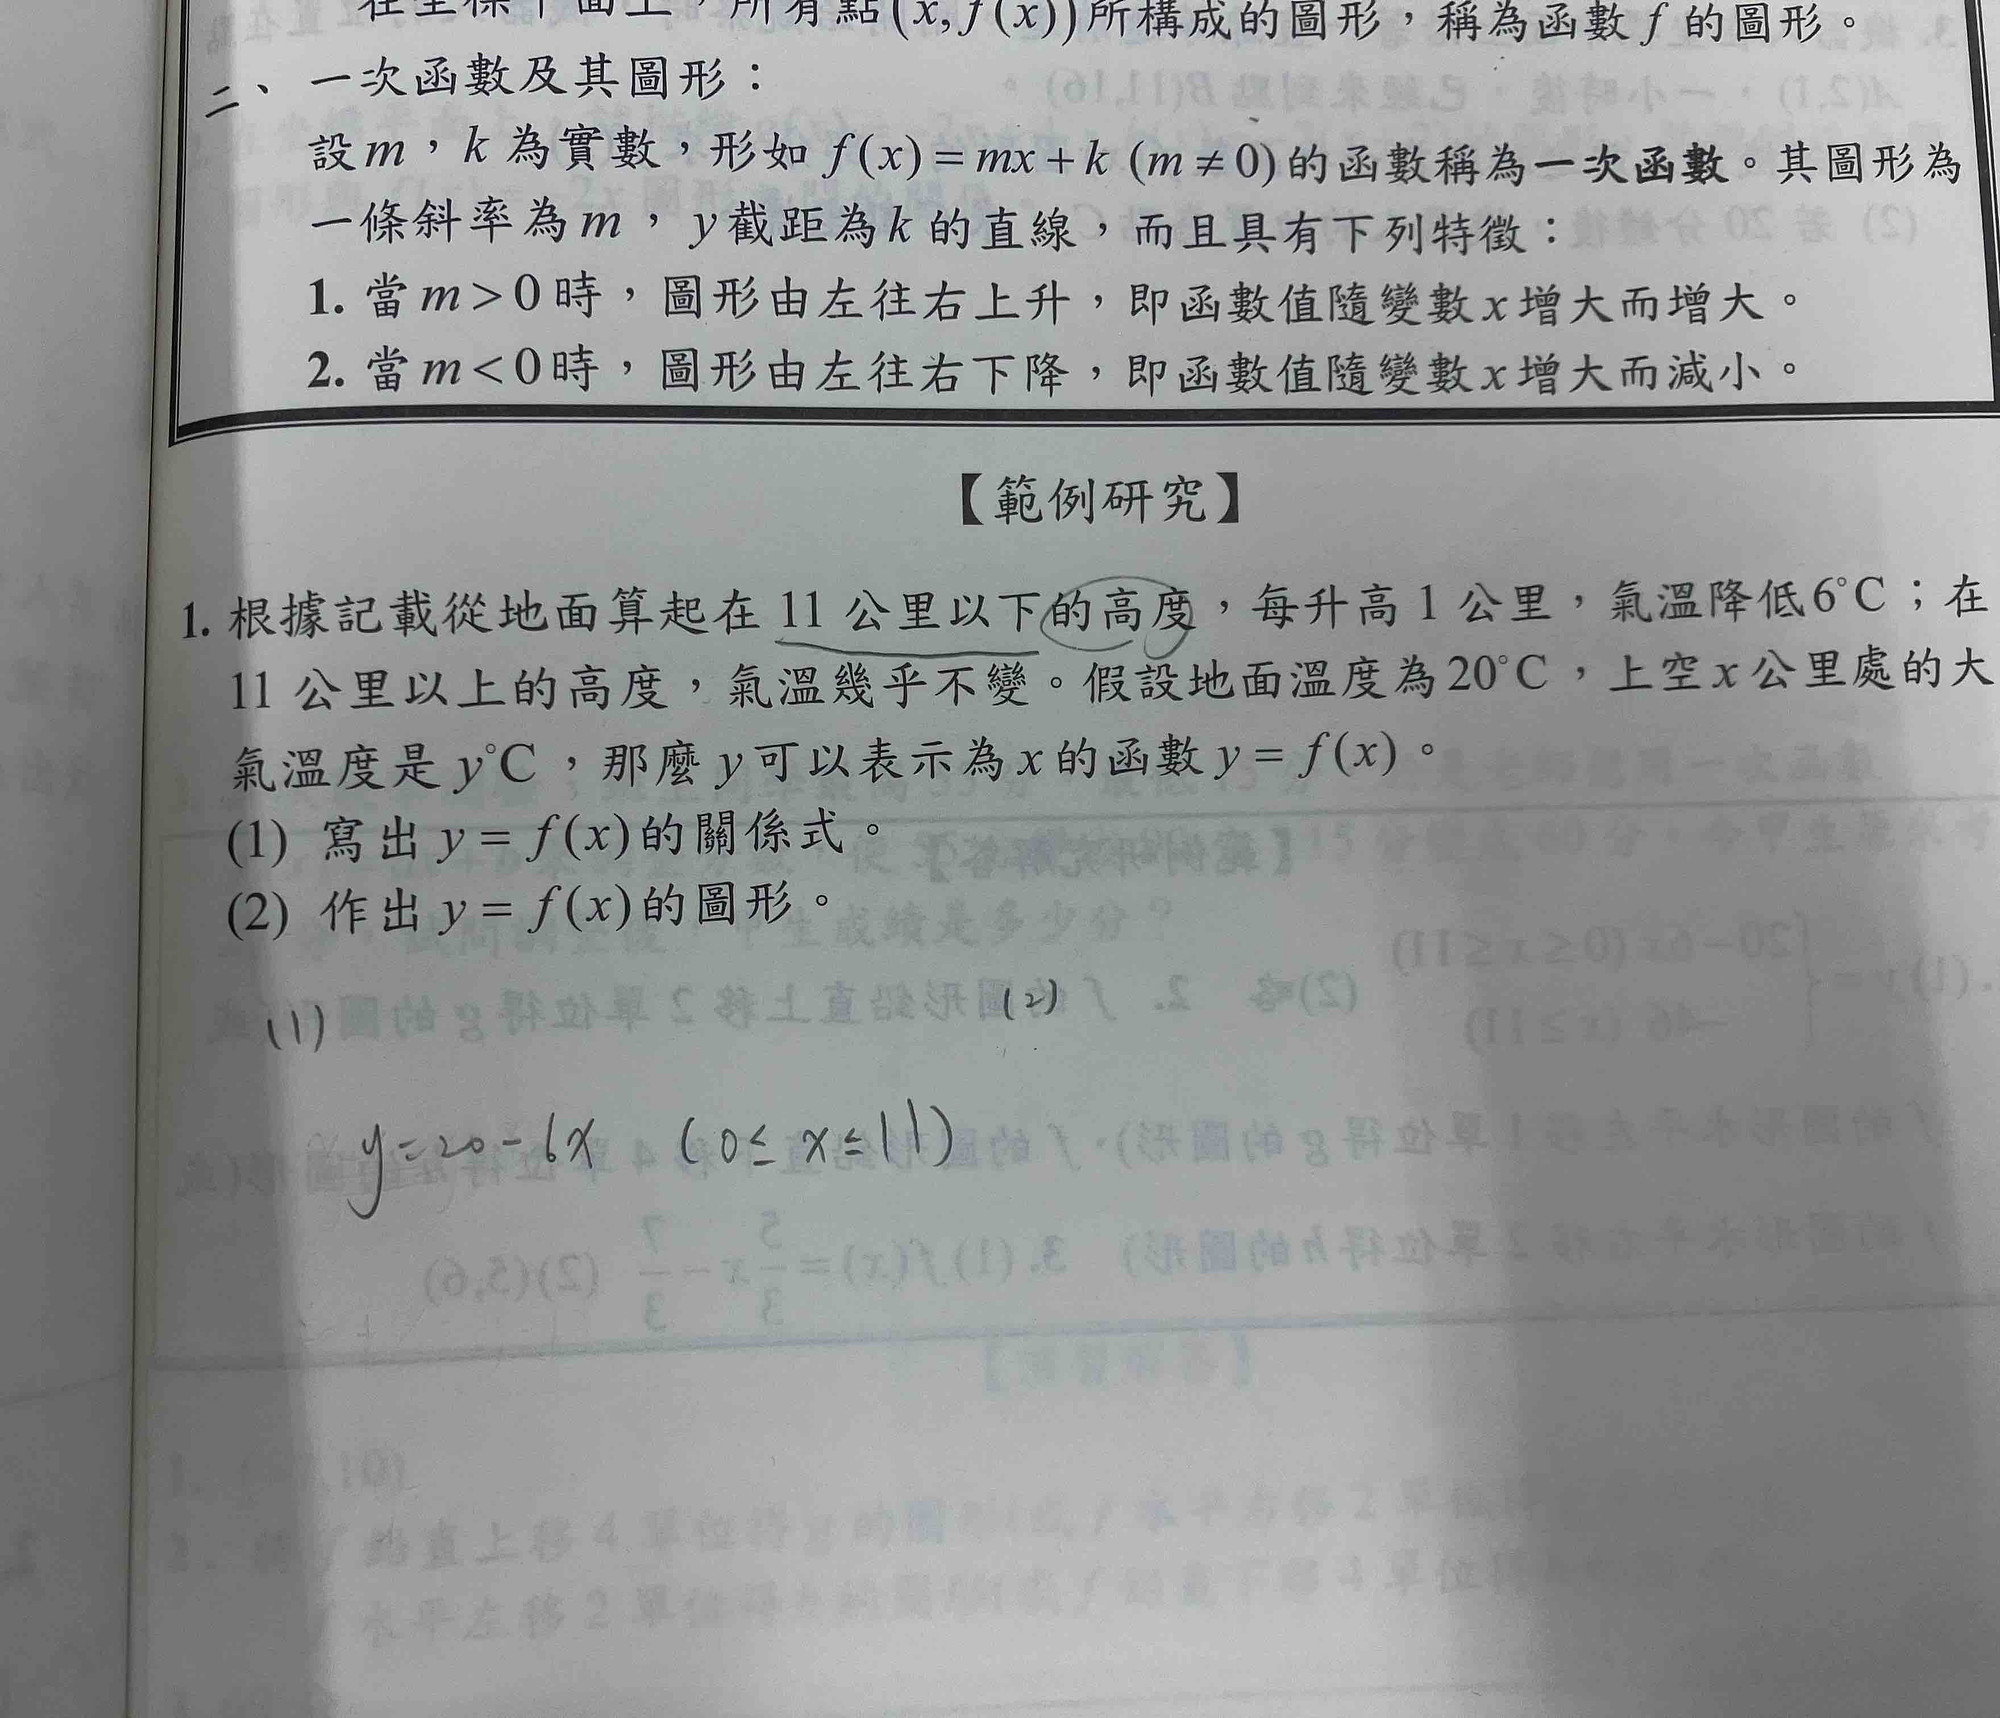 在坐標平面上，所有點(x, f(x))所構成的圖形，稱為函數 f 的圖形。
二、一次函數及其圖形：
設 m，k 為實數，形如 f(x) = mx + k (m ≠ 0)的函數稱為一次函數。其圖形為
一條斜率為 m，y 截距為 k 的直線，而且具有下列特徵：
1. 當 m > 0 時，圖形由左往右上升，即函數值隨變數 x 增大而增大。
2. 當 m < 0 時，圖形由左往右下降，即函數值隨變數 x 增大而減小。
【範例研究】
1. 根據記載從地面算起在 11 公里以下的高度，每升高 1 公里，氣溫降低 6°C；在
11 公里以上的高度，氣溫幾乎不變。假設地面溫度為 20°C，上空 x 公里處的大
氣溫度是 y°C，那麼 y 可以表示為 x 的函數 y = f(x)。
(1) 寫出 y = f(x)的關係式。
(2) 作出 y = f(x)的圖形。
(1) (2)
y = 20 - 6x (0 ≤ x ≤ 11)